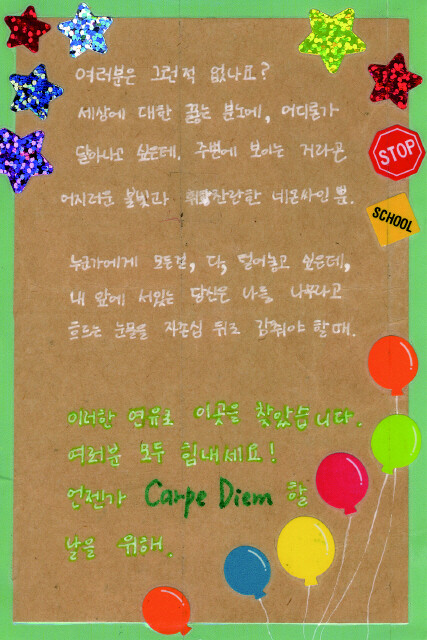 여러분은 그런적 없나요?
세상에 대한 끓는 분노에, 어디론가
달아나고 싶은데. 주변에 보이는 거라곤
어지러운 불빛과 휘황찬란한 네온싸인 뿐.
누군가에게 모든걸, 다, 털어놓고 싶은데,
내 앞에 서있는 당신은 나를 나꾸라고
흐르는 눈물을 자존심 뒤로 감춰야 할 때.
이러한 연유로 이곳을 찾았습니다.
여러분 모두 힘내세요!
언젠가 Carpe Diem 할
날을 위해.
STOP
SCHOOL